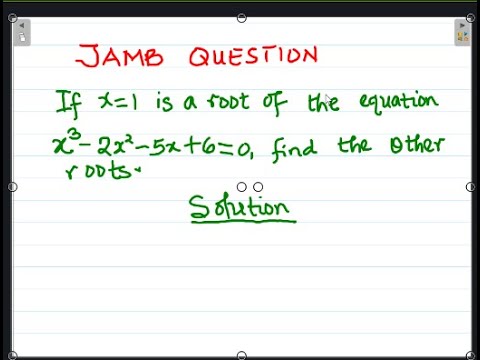 JAMB QUESTION
If x=1 is a root of the equation
x³-2x²-5x+6=0, find the other
roots.
Solution